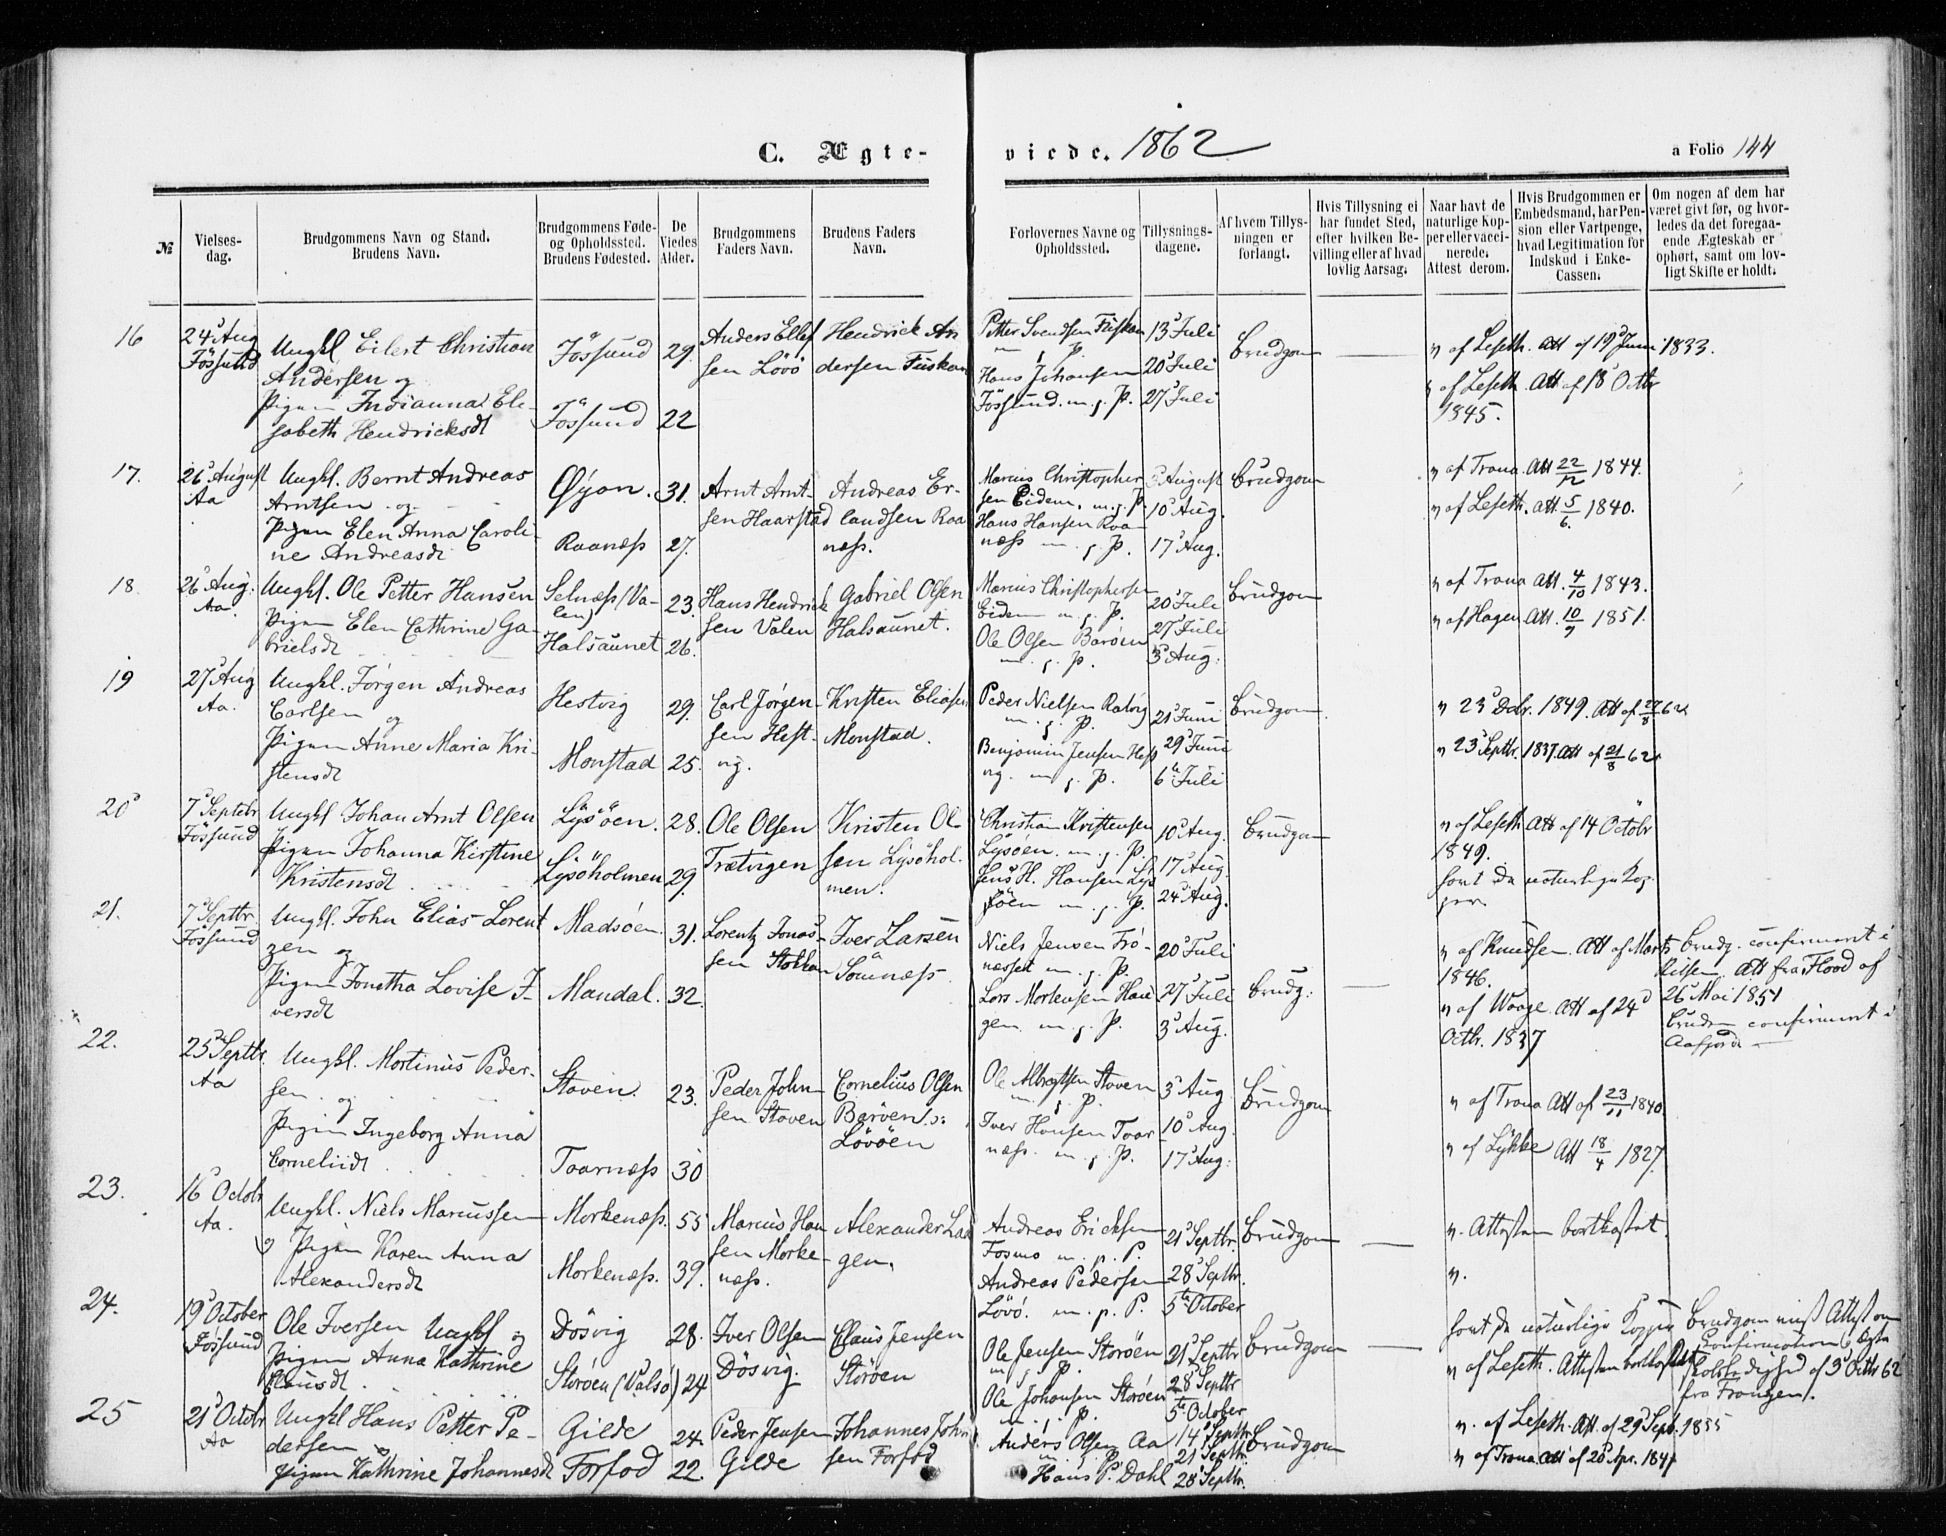 C. Ægte-
viede. 1862
a Folio 144
№
Vielses-
dag.
Brudgommens Navn og Stand.
Brudens Navn.
Brudgommens Føde-
og Opholdssted.
Brudens Fødested.
De
Viedes
Alder.
Brudgommens
Faders Navn.
Brudens Faders
Navn.
Forlovernes Navne og
Opholdssted.
Tillysnings-
dagene.
Af hvem Tillys-
ningen er
forlangt.
Hvis Tillysning ei
har fundet Sted,
efter hvilken Be-
villing eller af hvad
lovlig Aarsag.
Naar havt de
naturlige Kop-
per eller vacci-
nerede.
Attest derom.
Hvis Brudgommen er
Embedsmand, har Pen-
sion eller Vartpenge,
hvad Legitimation for
Indskud i Enke-
Cassen.
Om nogen af dem har
været givt før, og hvor-
ledes da det foregaa-
ende Ægteskab er
ophørt, samt om lov-
ligt Skifte er holdt.
16
24 Aug
Fössund
Ungkl Eilert Christian
Andersen og
Pigen Indianna Ele-
sabeth Hendricksdt
Fössund
Fössund
29.
22
Anders Ellef
sen Lövö
Hendrick An
dersen
Petter Svendsen
m. f. P.
Hans Johansen
Fössund. m. f. P.
13 Juli
20 Juli
27 Juli
Brudgom
v af Leseth. Att af 19 Juni 1833.
v af Leseth. Att af 18 Octbr
1845.
17.
26 August
Aa
Ungkl. Bernt Andreas
Arntsen og
Pigen Elen Anna Caroli-
ne Andreasdt
Øyan.
Raanæss
31.
27.
Arnt Arnt-
sen Haarstad
Andreas Er-
landsen Raa
næss.
Marius Christopher
sen Eidem. m. f. P.
Hans Hansen Raa
næss m. f. P.
3 August
10 Aug.
17 Aug.
Brudgom
v af Trana. Att 22/12 1844.
v af Leseth. Att. 5/6. 1840.
18.
26 Aug.
Aa.
Ungkl. Ole Petter Hansen
Pigen Elen Cathrine Ga-
brielsdt
Selnæss (Va-
len)
Halsaunet
23.
26.
Hans Hendrik
sen Valen
Gabriel Olsen
Halsaunet.
Marius Christophersen
Eidem m. f. P.
Ole Olsen Baröen
m. f. P.
20 Juli
27 Juli
3 Aug:
Brudgom
v af Trana Att. 4/10 1843.
v af Hagen Att. 10/9 1851.
19
27 Aug
Aa.
Ungkl. Jörgen Andreas
Carlsen
og
Pigen Anne Maria Kri-
stensdt
Hestvig
Monstad
29.
25.
Carl Jörgen-
sen Hest-
vig.
Kristen Eliasen
Monstad.
Peder Nielsen
m. f. P.
Benjamin Jensen
vig. m. f. P.
21 Juni
29 Juni
6te Juli
Brudgom.
v 23 Dcbr. 1849. Att af 62
v 23 Septbr. 1837. Att af 21/8 62
20
7 Septebr
Fössund
Ungkl Johan Arnt Olsen
Pigen Johanna Kirstine
Kristensdt
Lysöen.
Lysöholmen
28.
29.
Ole Olsen
Trætvigen
Kristen Ol-
sen Lysöhol-
men.
Christian Kristensen
Lysöen. m. f. P.
Jens H. Hansen Lys
söen m. f. P.
10 Aug.
17 Aug.
24 Aug.
Brudgom
v af Leseth Att af 14 Octobr
1849.
havt de naturlige Kop-
per.
21.
7 Septbr.
Fössund
Ungkl. John Elias Lorent
zen og
Pigen Jonetha Lovise I-
versdt
Madsöen
Mandal.
31.
32.
Lorentz Jonas-
sen Stokken
Iver Larsen
Sörnæss.
Niels Jensen Frö-
næsset m. f. P.
Lars Mortensen Hau
gen. m. f. P.
20 Juli
27 Juli
3 Aug.
Brudg:
v af Knudsen. Att af Marts
1846.
v af Waage. Att af 24
Octbr. 1837
Brudg. confirmeret i
Att fra Flood af
26 Mai 1851
Bruden confirmeret i
Aafjord
22.
25 Septbr.
Aa
Ungkl. Mortinus Peder-
sen og
Pigen Ingeborg Anna
Corneliidt
Stoven.
Taarnæss
23.
30
Peder John-
sen Stoven
Cornelius Olsen
Baröen s:
Lövöen
Ole Albregtsen Stoven
m. f. P.
Iver Hansen Taar
næss. m. f. P.
3 Aug
10 Aug.
17 Aug:
Brudgom
v af Trana Att af 23/11 1840
v af Lykke Att 18/4 1827.
23.
16 Octobr
Aa.
Ungkl. Niels Mariussen
og Pigen Karen Anna
Alexandersdt
Morkenæss.
Morkenæss.
55
39.
Marius Han
sen Morke-
næss.
Alexander Lau
gen.
Andreas Ericksen
Fosmo m. p. P.
Andreas Pedersen
Lövö. m. p. P.
21 Septbr.
28 Septbr.
5te October
Brudgom
v. Attesten bortkastet.
v.
24.
19 October
Fössund
Ole Iversen Ungkl og
Pigen Anna Kathrine
Clausdt
Dösvig
Storöen (Valsö)
28.
24
Iver Olsen
Dösvig.
Claus Jensen
Storöen
Ole Jensen Storöen
m. f. P.
Ole Johansen Storöen
m. f. P.
21 Septbr
28 Septbr
5te October
Brudgom
havt de naturlige Kopper
v af Leseth. Attesten bortkastet
Brudgom vist Attest om
Confirmation, Ægte
af 3 Octbr 62
fra
25
21 Octobr
Aa
Ungkl Hans Petter Pe-
dersen
og
Pigen Kathrine Johannesdt
Gilde
Forfod
24.
22.
Peder Jensen
Gilde
Johannes John
sen Forfod
Anders Olsen Aa
Hans P. Dahl
14 Septbr
21 Septbr.
28 Septbr.
Brudgom
v. af Leseth. Att. af 29 Sept. 1835
v af Trana Att af 20 Apr. 1841